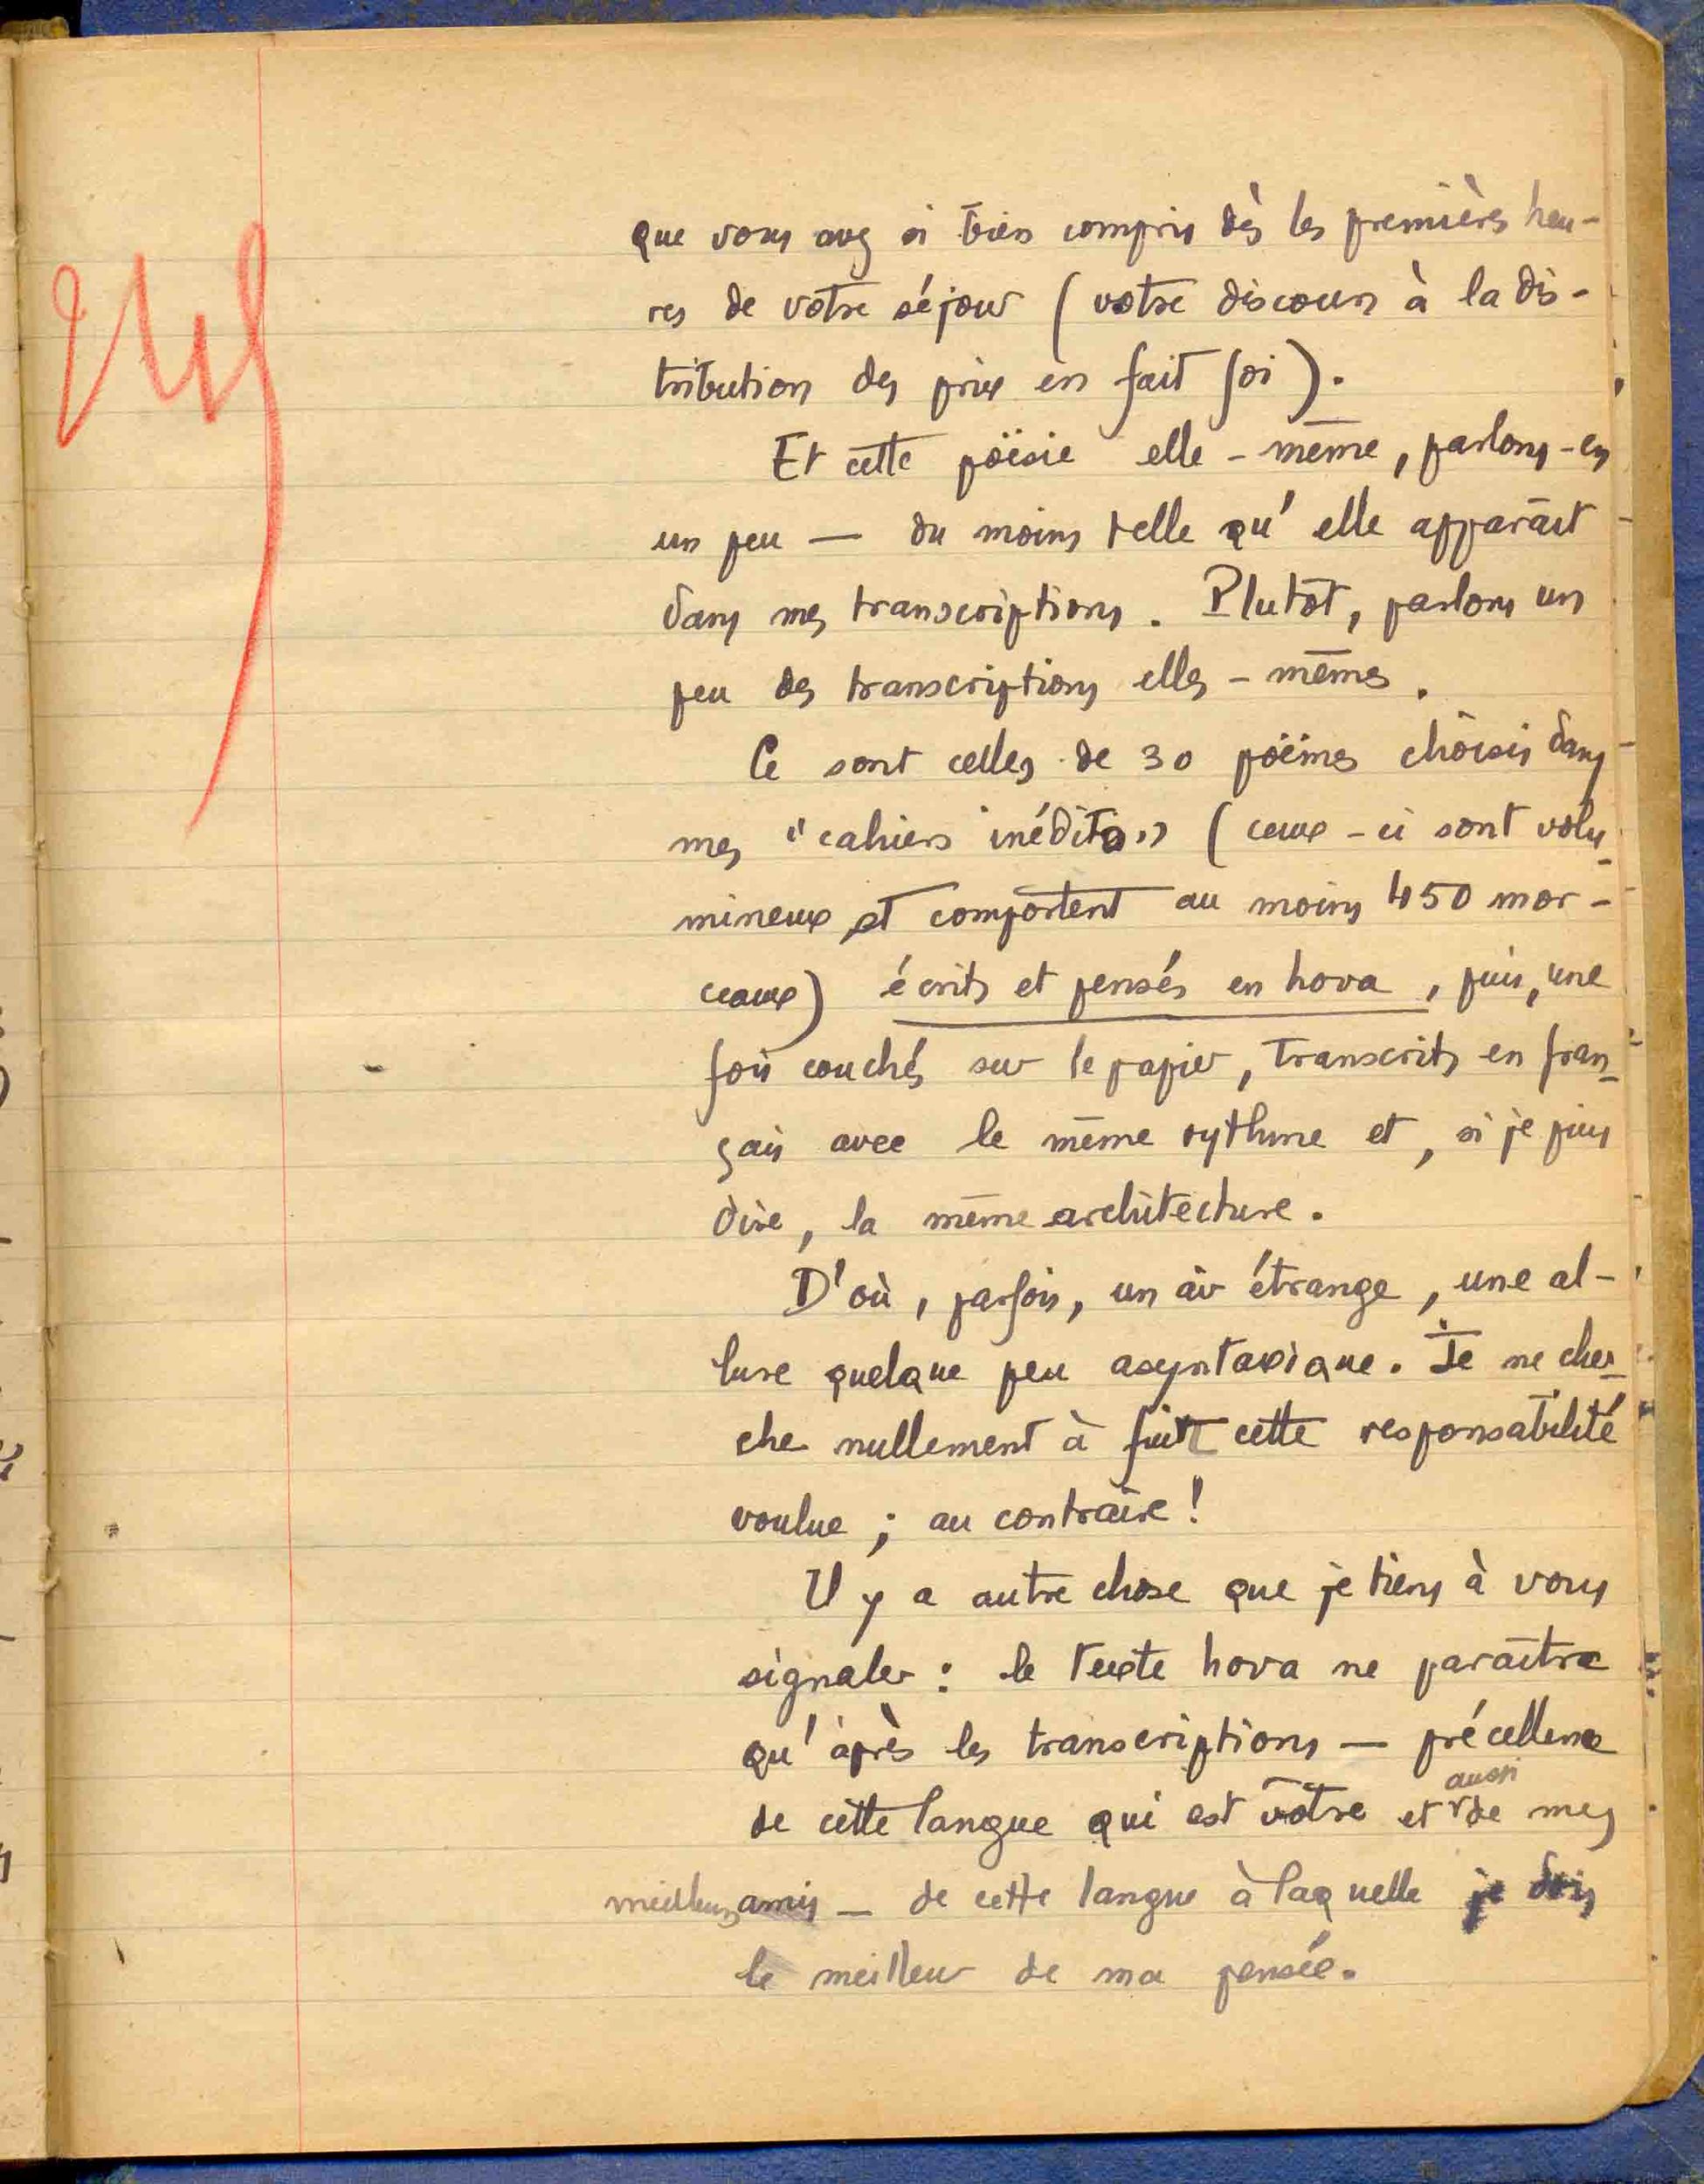 que vous avez si bien compris dès les premières heu-
res de votre séjour (votre discours à la dis-
tribution des prix en fait foi).
Et cette poësie elle-même, parlons-en
un peu — du moins telle qu'elle apparaît
dans mes transcriptions. Plutôt, parlons un
peu des transcriptions elles-mêmes.
Ce sont celles de 30 poëmes choisis dans
mes "cahiers inédits" (ceux-ci sont volu-
mineux et comportent au moins 450 mor-
ceaux) écrits et pensés en hova, puis, une
fois couchés sur le papier, transcrits en fran-
çais avec le même rythme et, si je puis
dire, la même architecture.
D'où, parfois, un air étrange, une al-
lure quelque peu asyntaxique. Je ne cher-
che nullement à fuir cette responsabilité
voulue ; au contraire !
Il y a autre chose que je tiens à vous
signaler : le texte hova ne paraîtra
qu'après les transcriptions — précellence
de cette langue qui est vôtre et aussi de mes
meilleurs amis — de cette langue à laquelle je dois
le meilleur de ma pensée.